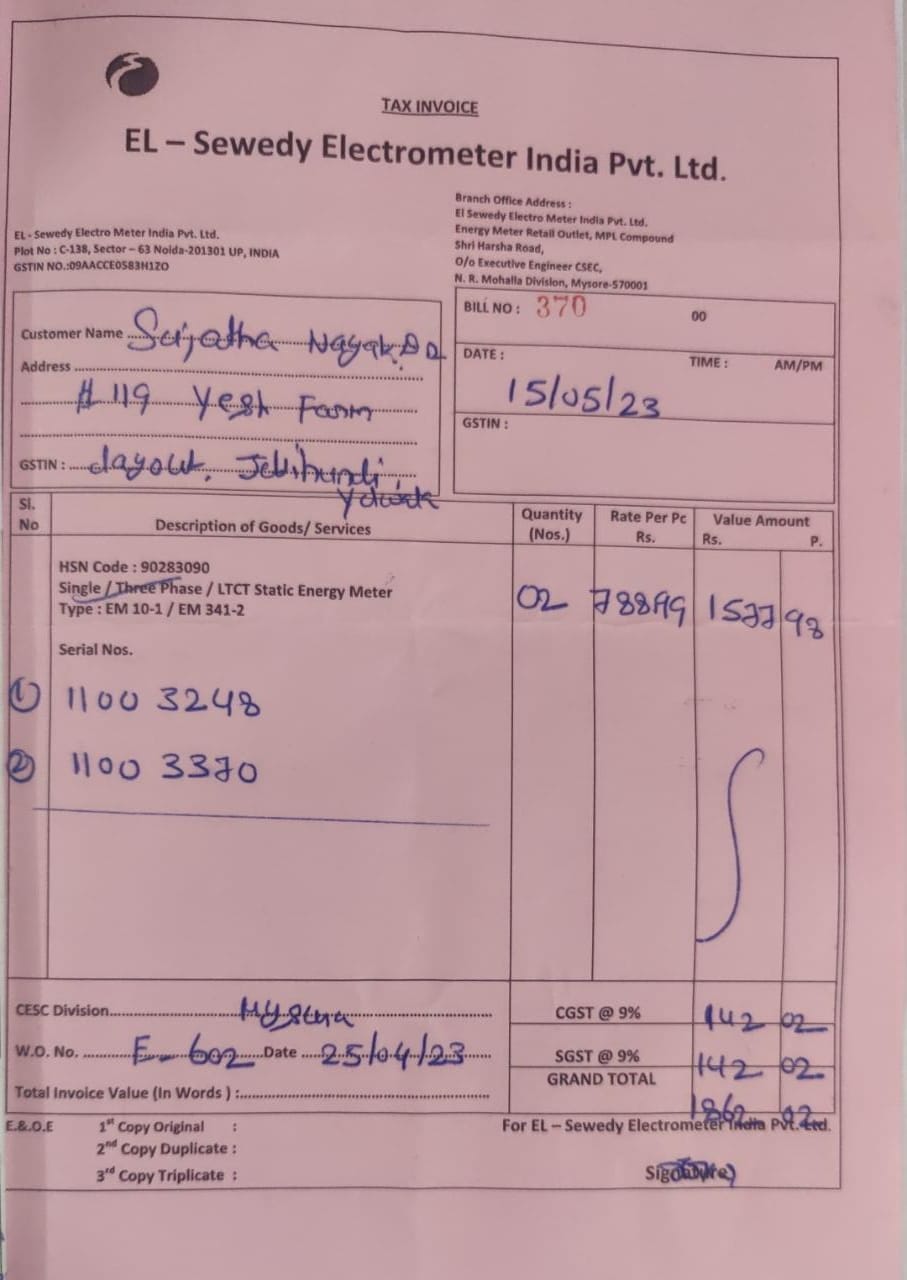 TAX INVOICE
EL – Sewedy Electrometer India Pvt. Ltd.
EL - Sewedy Electro Meter India Pvt. Ltd.
Plot No : C-138, Sector – 63 Noida-201301 UP, INDIA
GSTIN NO.:09AACCE0583H1ZO
Branch Office Address :
El Sewedy Electro Meter India Pvt. Ltd.
Energy Meter Retail Outlet, MPL Compound
Shri Harsha Road,
O/o Executive Engineer CSEC,
N. R. Mohalla Division, Mysore-570001
Customer Name Sujatha Nayak
Address
# 119 Yesh Farm
GSTIN : Layout,
BILL NO : 370 00
DATE : TIME : AM/PM
15/05/23
GSTIN :
Sl. No Description of Goods/ Services Quantity (Nos.) Rate Per Pc Rs. Value Amount Rs. P.
HSN Code : 90283090
Single / Three Phase / LTCT Static Energy Meter
Type : EM 10-1 / EM 341-2
02 78899 1577 98
Serial Nos.
1 1100 3248
2 1100 3370
CESC Division
W.O. No. E-602 Date 25/04/23
Total Invoice Value (In Words) :
CGST @ 9% 142 02
SGST @ 9% 142 02
GRAND TOTAL 1862 02
E.&.O.E 1st Copy Original :
2nd Copy Duplicate :
3rd Copy Triplicate :
For EL – Sewedy Electrometer India Pvt. Ltd.